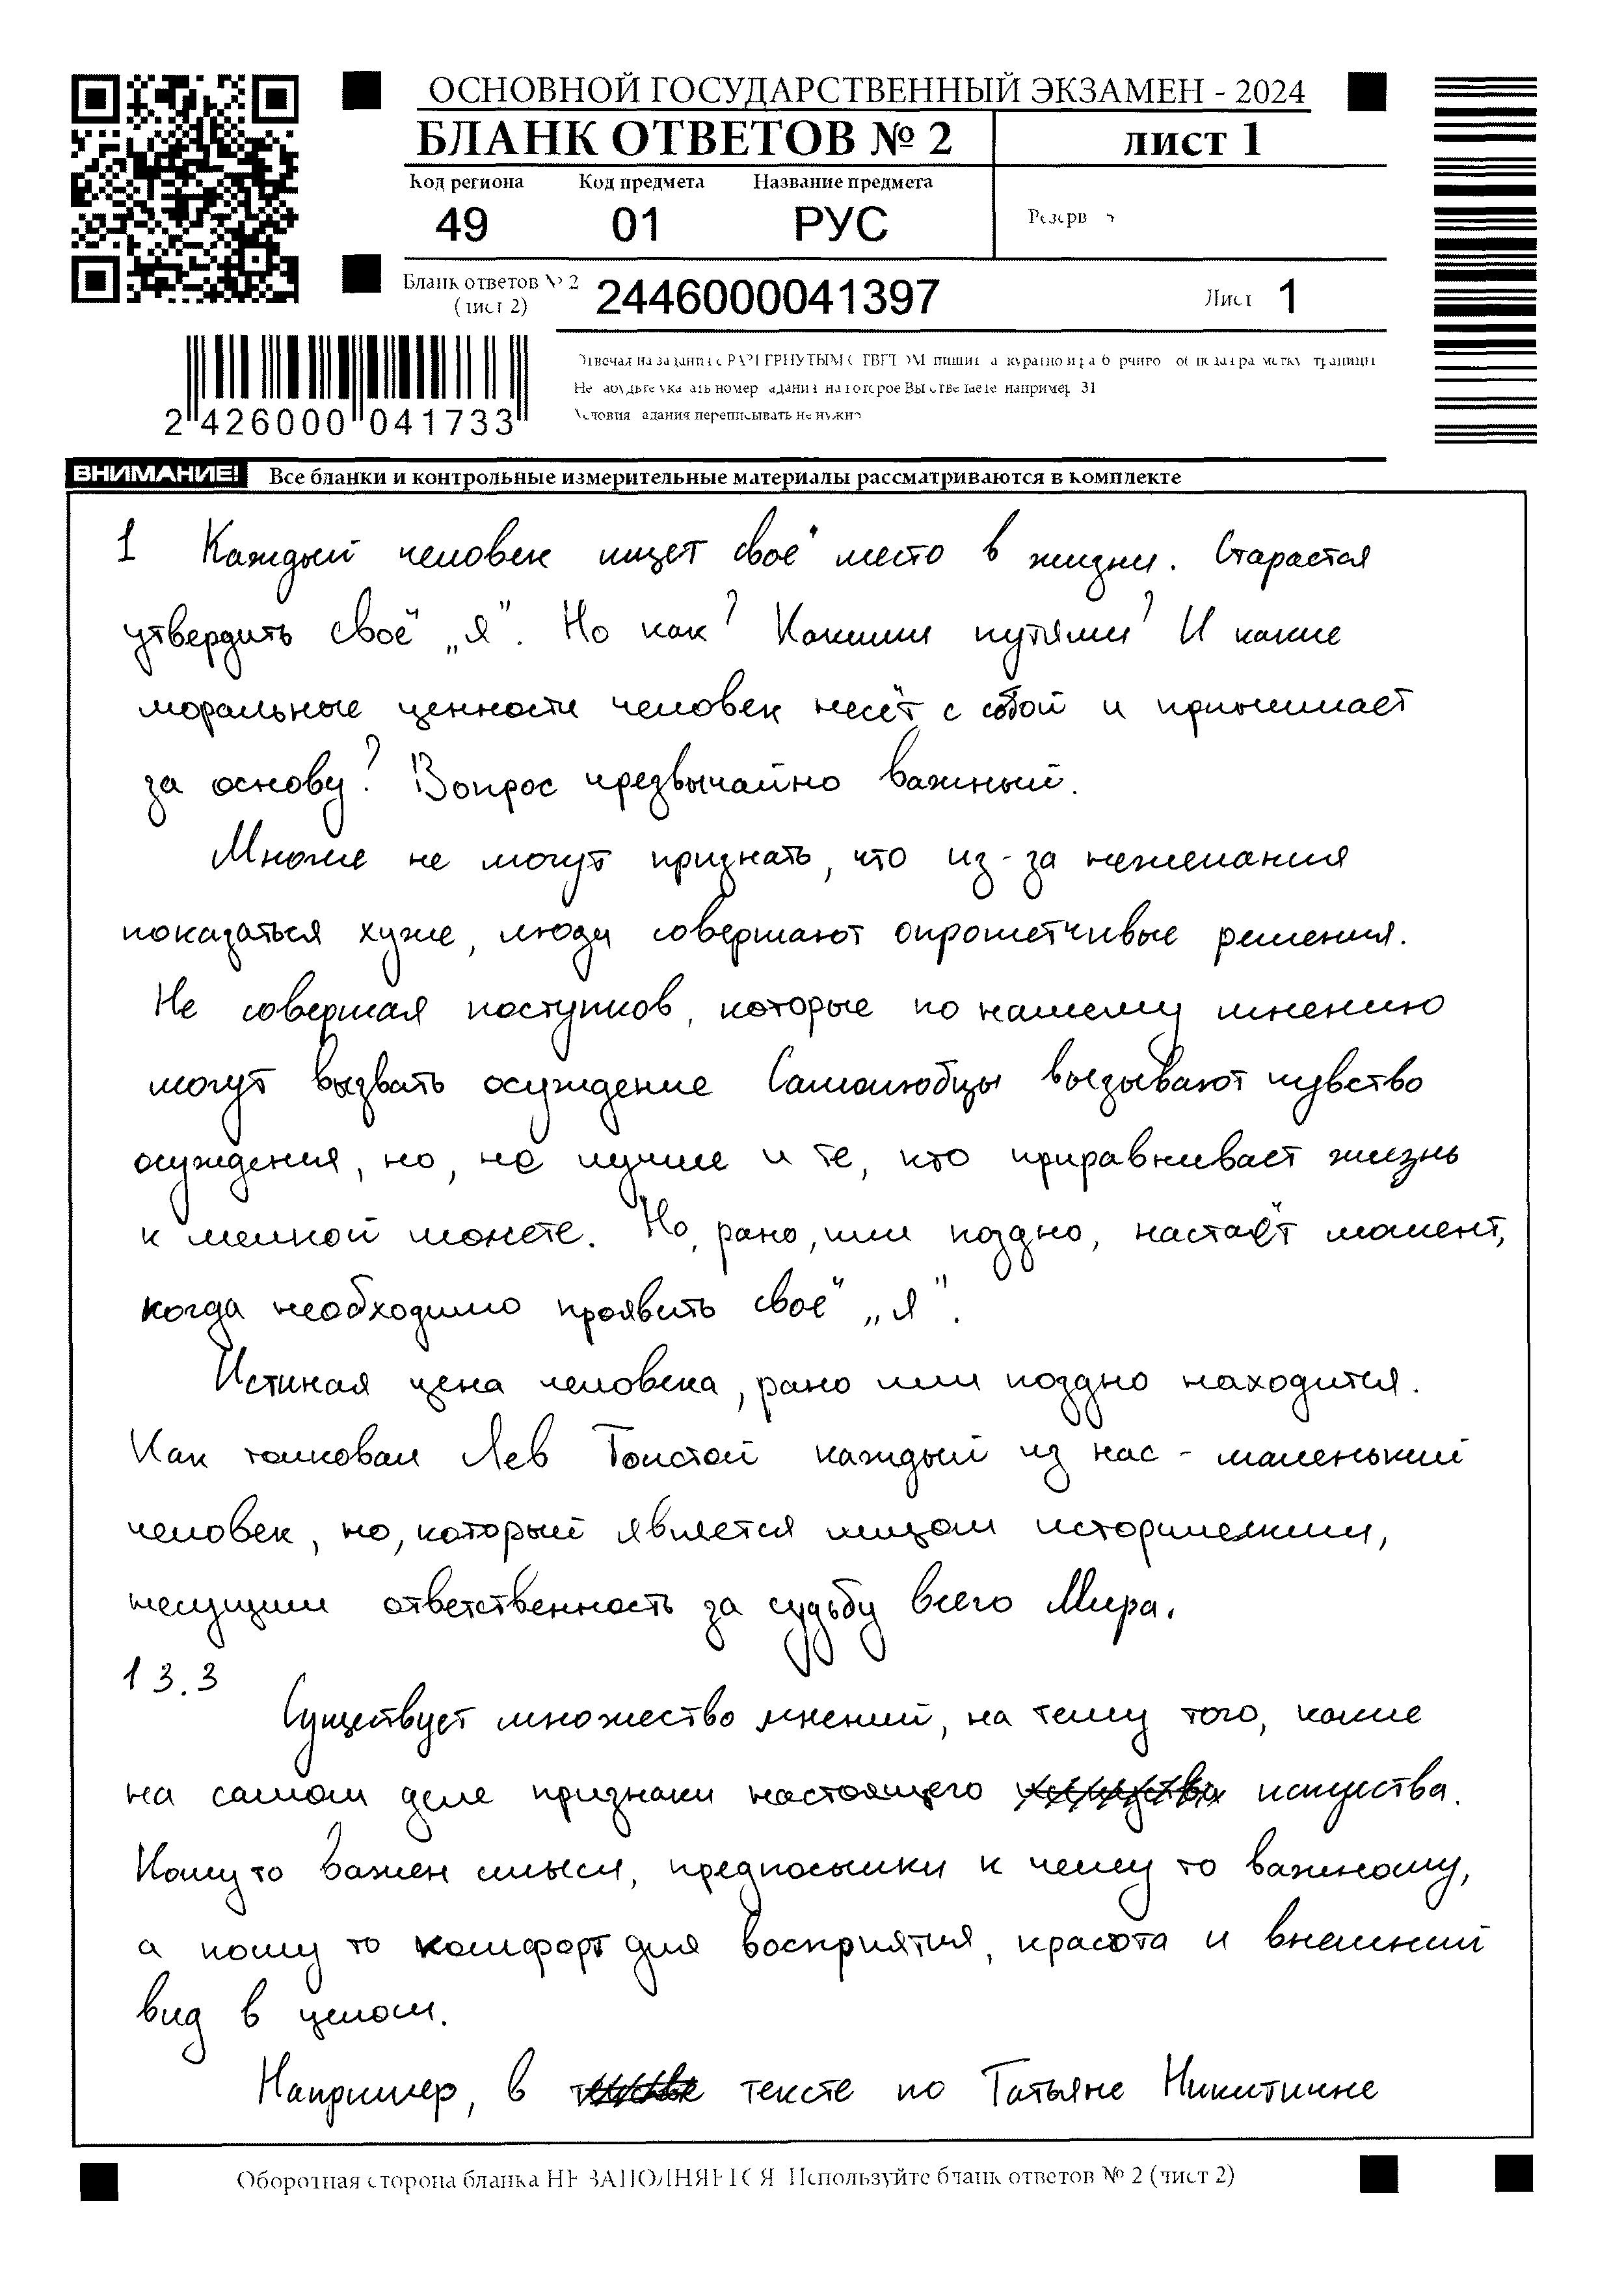 ОСНОВНОЙ ГОСУДАРСТВЕННЫЙ ЭКЗАМЕН - 2024
БЛАНК ОТВЕТОВ № 2
ЛИСТ 1
Код региона Код предмета Название предмета
49 01 РУС
Резерв
Бланк ответов № 2
(лист 2)
2446000041397
Лист 1
2 426000 041733
Отвечая на задания с РАЗВЕРНУТЫМ ОТВЕТОМ пишите аккуратно и разборчиво
Не забудьте указать номер задания на которое Вы отвечаете например 31
Условия задания переписывать не нужно
ВНИМАНИЕ! Все бланки и контрольные измерительные материалы рассматриваются в комплекте
1 Каждый человек ищет своё место в жизни. Старается
утвердить своё „я". Но как? Какими путями? И какие
моральные ценности человек несёт с собой и принимает
за основу? Вопрос чрезвычайно важный.
Многие не могут признать, что из-за нежелания
показаться хуже, люди совершают опрометчивые решения.
Не совершая поступков, которые по нашему мнению
могут вызвать осуждение Самолюбцы вызывают чувство
осуждения, но, не лучше и те, кто приравнивает жизнь
к мелкой монете. Но, рано, или поздно, настаёт момент,
когда необходимо проявить своё „я".
Истиная цена человека, рано или поздно находится.
Как толковал Лев Толстой каждый из нас - маленький
человек, но, который является лицом историческим,
несущим ответственность за судьбу всего Мира.
13.3
Существует множество мнений, на тему того, какие
на самом деле признаки настоящего искуства.
Кому то важен смысл, предпосылки к чему то важному,
а кому то комфорт для восприятия, красота и внешний
вид в целом.
Например, в тексте по Татьяне Никитичне
Оборотная сторона бланка НЕ ЗАПОЛНЯЕТСЯ Используйте бланк ответов № 2 (лист 2)